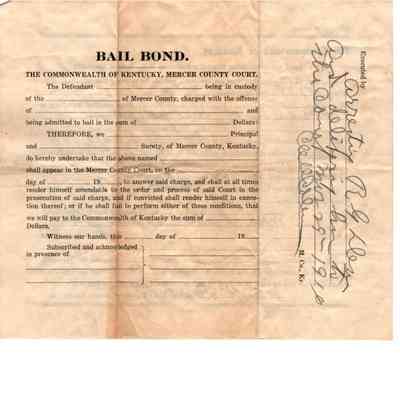 BAIL BOND.
THE COMMONWEALTH OF KENTUCKY, MERCER COUNTY COURT.
The Defendant being in custody
of the of Mercer County, charged with the offense
of and
being admitted to bail in the sum of Dollars:
THEREFORE, we Principal
and Surety, of Mercer County, Kentucky,
do hereby undertake that the above named
shall appear in the Mercer County Court, on the
day of 19 , to answer said charge, and shall at all times
render himself amenable to the order and process of said Court in the
prosecution of said charge, and if convicted shall render himself in execu-
tion thereof; or if he shall fail to perform either of these conditions, that
we will pay to the Commonwealth of Kentucky the sum of
Dollars.
Witness our hands, this day of 19
Subscribed and acknowledged
in presence of
Executed by
and
the Court